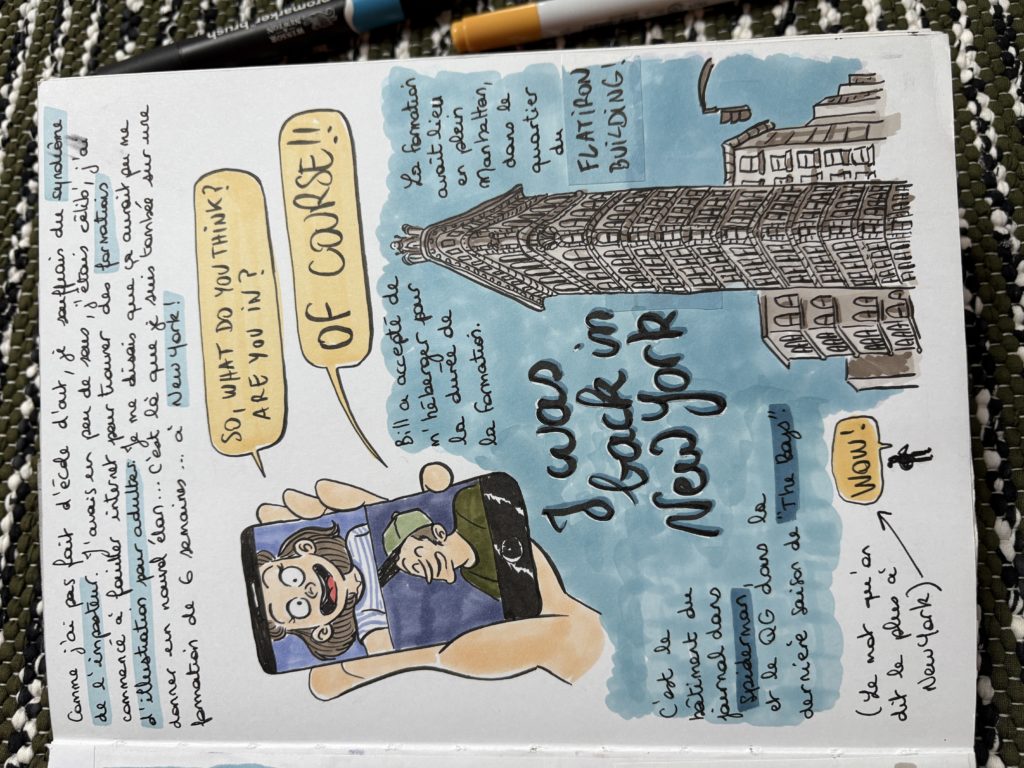 Comme j'ai pas fait d'école d'art, je souffrais du syndrôme
de l'imposteur. J'avais un peu de sous, j'étais célib, j'ai
commencé à fouiller internet pour trouver des formations
d'illustration pour adultes. Je me disais que ça aurait pu me
donner un nouvel élan... C'est là que je suis tombée sur une
formation de 6 semaines... à New York!
SO, WHAT DO YOU THINK?
ARE YOU IN?
OF COURSE!!
Bill a accepté de
m'héberger pour
la durée de
la formation.
La formation
avait lieu
en plein
Manhattan,
dans le
quartier
du
FLATIRON
BUILDING!
I was
back in
New York
C'est le
bâtiment du
journal dans
Spiderman
et le QG dans la
dernière saison de "The Boys".
WOW!
(Le mot qu'on
dit le plus à
New York)
promarker brush
WINSOR
& NEWTON